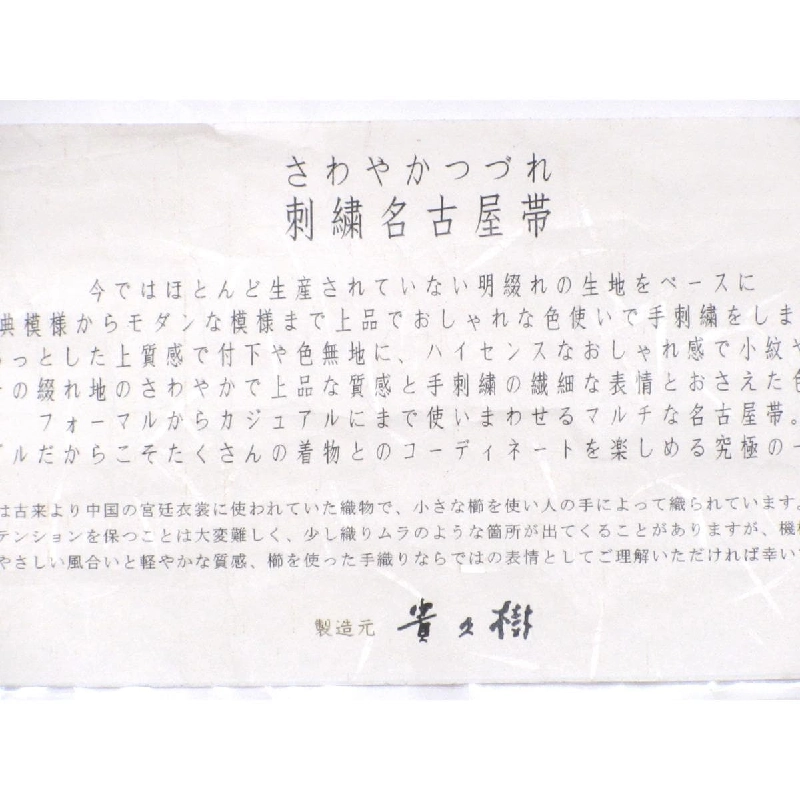 さわやかつづれ
刺繍名古屋帯
今ではほとんど生産されていない明綴れの生地をベースに
典模様からモダンな模様まで上品でおしゃれな色使いで手刺繍をしま
っとした上質感で付下や色無地に、ハイセンスなおしゃれ感で小紋や
の綴れ地のさわやかで上品な質感と手刺繍の繊細な表情とおさえた色
フォーマルからカジュアルにまで使いまわせるマルチな名古屋帯。
ルだからこそたくさんの着物とのコーディネートを楽しめる究極の一
は古来より中国の宮廷衣裳に使われていた織物で、小さな櫛を使い人の手によって織られています。
テンションを保つことは大変難しく、少し織りムラのような箇所が出てくることがありますが、機械
やさしい風合いと軽やかな質感、櫛を使った手織りならではの表情としてご理解いただければ幸いで
製造元 貴久樹